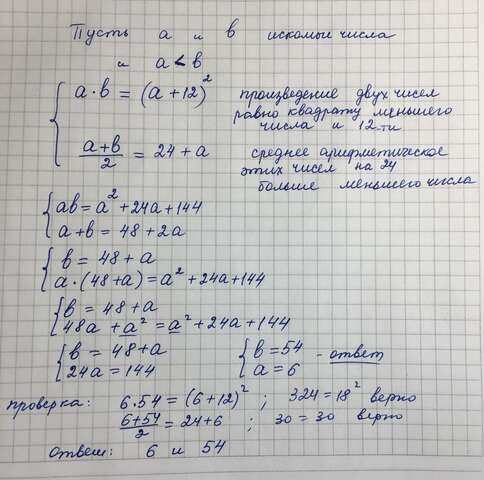 Пусть a и b искомые числа
и a < b
{ a·b = (a+12)² произведение двух чисел
равно квадрату меньшего
числа и 12-ти
(a+b)/2 = 24 + a среднее арифметическое
этих чисел на 24
больше меньшего числа
{ ab = a² + 24a + 144
a + b = 48 + 2a
{ b = 48 + a
a·(48+a) = a² + 24a + 144
{ b = 48 + a
48a + a² = a² + 24a + 144
{ b = 48 + a { b = 54 - ответ
24a = 144 a = 6
проверка: 6·54 = (6+12)² ; 324 = 18² верно
(6+54)/2 = 24+6 ; 30 = 30 верно
ответ: 6 и 54